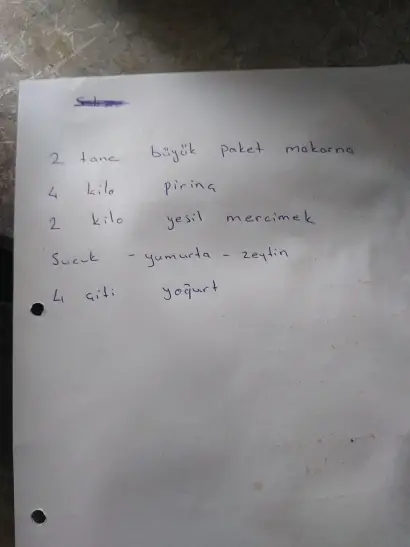 2 tane büyük paket makarna
4 kilo pirinç
2 kilo yeşil mercimek
Sucuk - yumurta - zeytin
4 çiti yoğurt